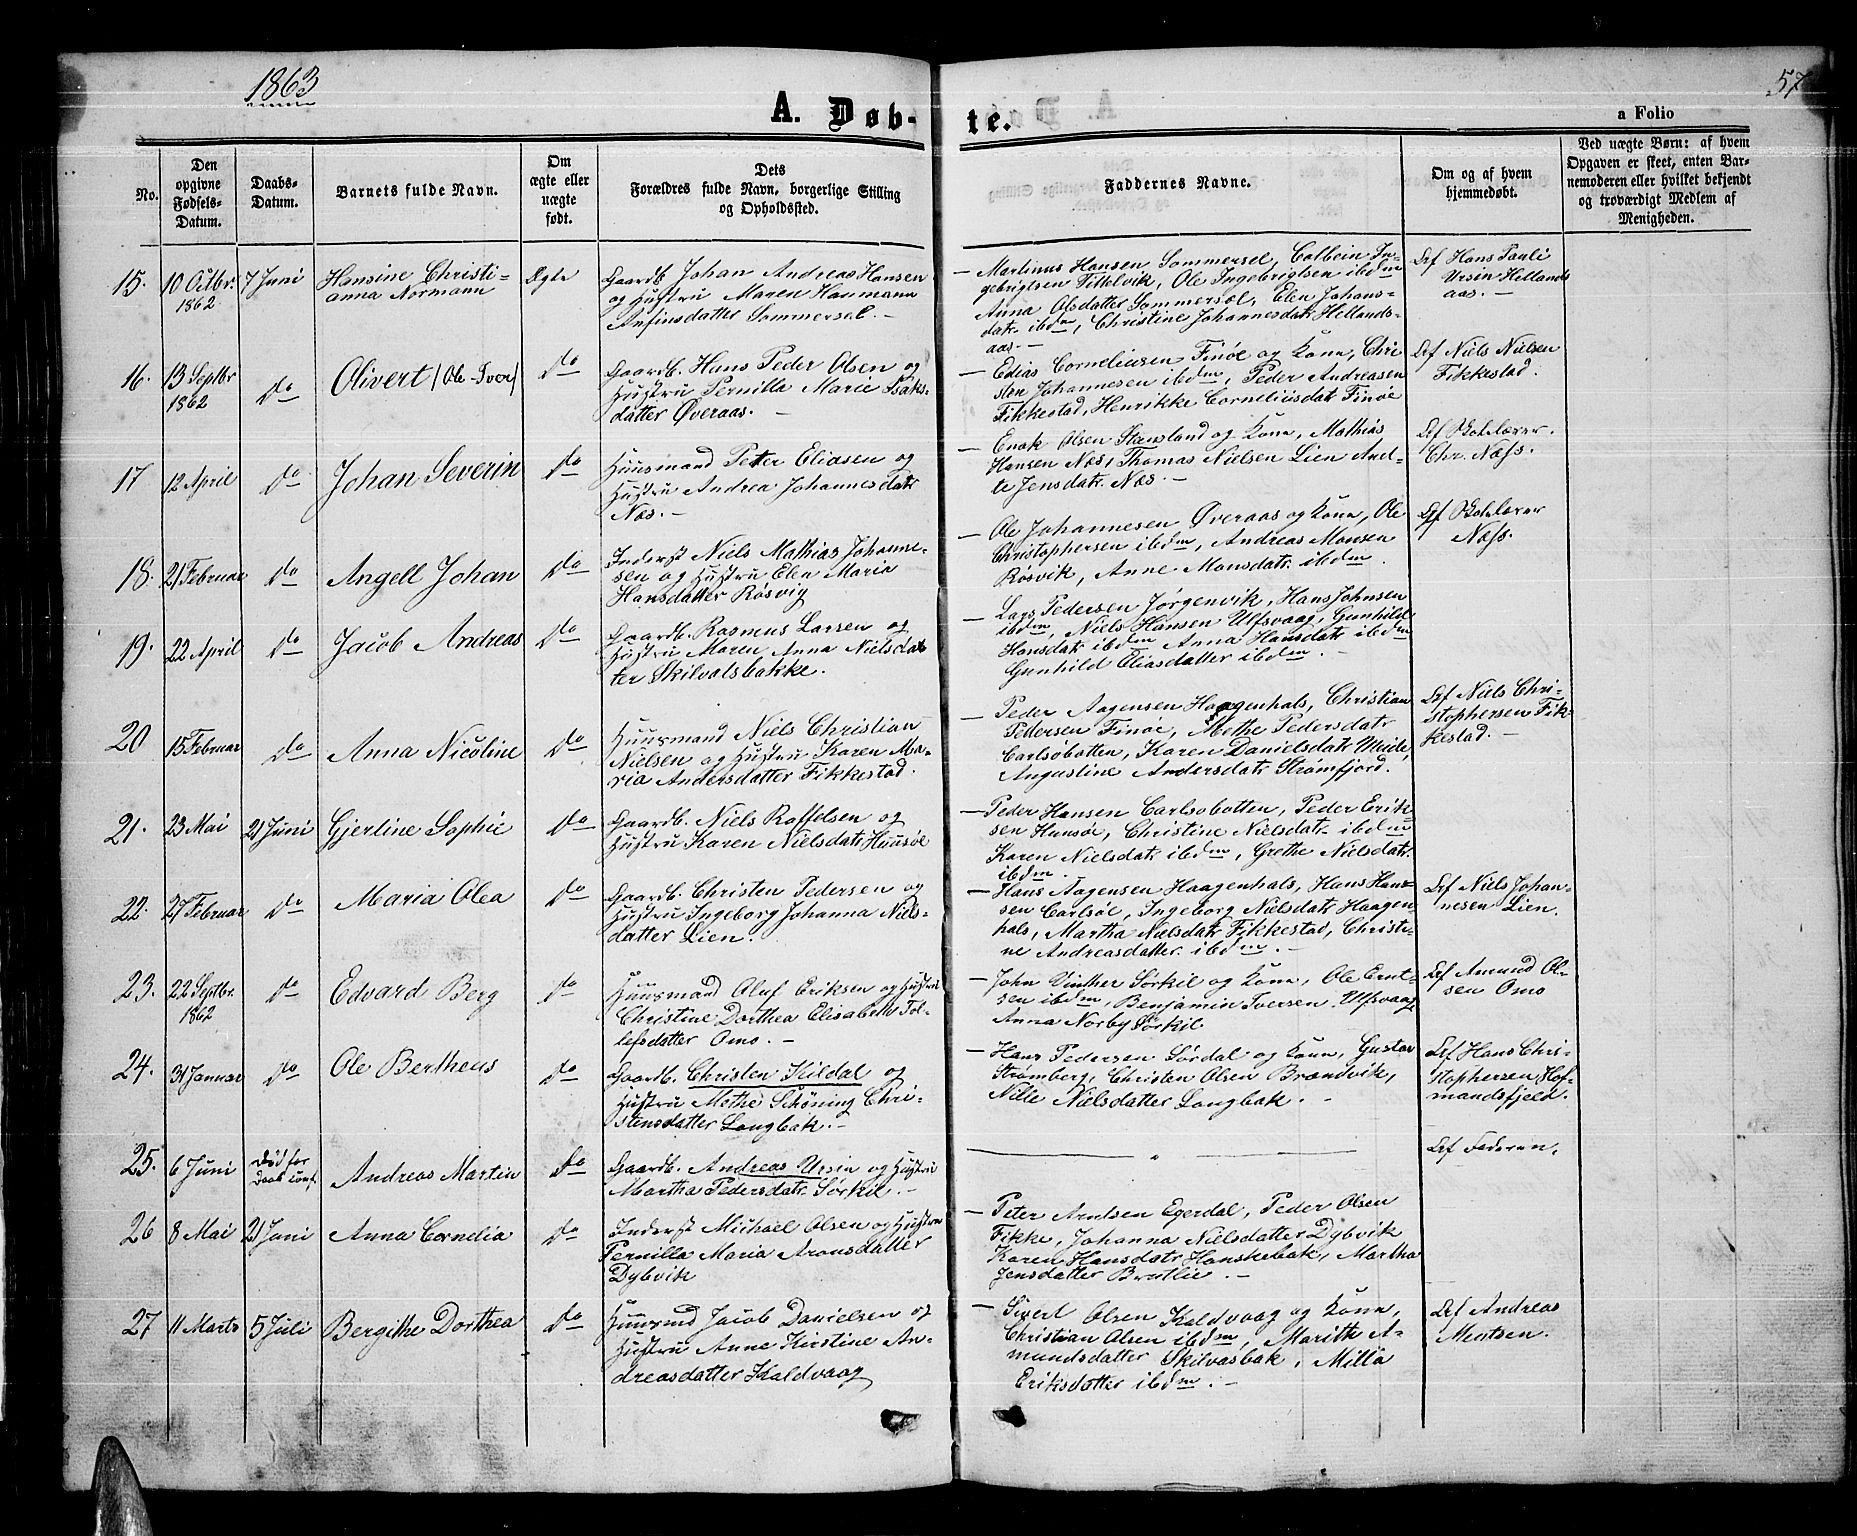 1863
57
A. Døb-
te.
a Folio
No.
Den
opgivne
Fødsels-
Datum.
Daabs-
Datum.
Barnets fulde Navn.
Om
ægte eller
uægte
født.
Dets
Forældres fulde Navn, borgerlige Stilling
og Opholdssted.
Faddernes Navne.
Om og af hvem
hjemmedøbt.
Ved uægte Børn: af hvem
Opgaven er skeet, enten Bar-
nemoderen eller hvilket bekjendt
og troværdigt Medlem af
Menigheden.
15.
10 Octbr.
1862
7 Juni
Hansine Christi-
anna Normann
Ægte
Gaardb. Johan Andreas Hansen
og Hustru Maren Haumann
Anfinsdatter Sommersel.-
- Martinus Hansen Sommersel, Colbein In-
gebrigtsen Fikkelvik, Ole Ingebrigtsen ibdm
Anna Olsdatter Sommersel, Elen Johans-
datr. ibdm, Christine Johannesdatr Hellands-
aas.-
Def Hans Pauli
Ursin Hellands
aas.-
16.
13 Septbr
1862
do
Olivert (Ole-Iver)
do
Gaardb. Hans Peder Olsen og
Hustru Pernille Marie Isaks-
datter Øveraas.-
- Edias Corneliusen Finøe og Kone, Chri-
sten Johannesen ibdm, Peder Andreasen
Fikkestad, Henrikke Corneliusdatr Finøe
Def Niels Nielsen
Fikkestad.
17
12 April
do
Johan Severin
do
Huusmand Peter Eliasen og
Hustru Andrea Johannesdatr
Næs.-
- Enok Olsen Stensland og Kone, Mathias
Hansen Næs, Thomas Nielsen Lien And-
te Jensdatr. Næs.-
Def Skolelærer
Chr. Næss.
18.
21 Februar
do
Angell Johan
do
Inderst Niels Mathias Johanne-
sen og Hustru Elen Maria
Hansdatter Røsvig
- Ole Johannesen Øveraas og Kone, Ole
Christophersen ibdm, Andreas Monsen
Røsvik, Anne Monsdatr. ibdm.
Def Skolelærer
Næss.
19.
22 April
do
Jacob Andreas
do
Gaardb. Rasmus Larsen og
Hustru Maren Anna Nielsdat
ter Skilvalsbakke.
- Lars Pedersen Jørgenvik, Hans Johnsen
ibdm, Niels Hansen Ulfsvaag, Gunhild
Hansdatr ibdm Anna Hansdatr ibdm
Gunhild Eliasdatter ibdm.-
20
15 Februar
do
Anna Nicoline
do
Huusmand Niels Christian
Nielsen og Hustru Karen Ma-
ria Andersdatter Fikkestad.
- Peder Aagensen Haagenhals, Christian
Pedersen Finøe, Methe Pedersdatr
Carlsøbotten, Karen Danielsdatr
Augustine Andersdatr Strømfjord.
Def Niels Chri-
stophersen Fik-
kestad.-
21.
23 Mai
21 Juni
Gjertine Sophie
do
Gaardb. Niels Roffelsen og
Hustru Karen Nielsdatr. Hunsøe
- Peder Hansen Carlsøbotten, Peder Erik-
sen Hunsøe, Christine Nielsdatr. ibdm
Karen Nielsdatr ibdm, Grethe Nielsdatr.
ibdm.
22.
27 Februar
do
Maria Olea
do
Gaardb. Christen Pedersen og
Hustru Ingeborg Johanna Niels-
datter Lien.
- Hans Aagensen Haagenhals, Hans Han-
sen Carlsøe, Ingeborg Nielsdatr Haagen-
hals, Martha Nielsdatr Fikkestad, Christi-
ne Andreasdatter ibdm.-
Def Niels Johan-
nesen Lien.
23.
22 Septbr.
1862
do
Edvard Berg
do
Huusmand Oluf Eriksen og Hustru
Christine Dorthea Elisabeth Tol-
lefsdatter Omo.-
- John Vinther Sørkil og Kone, Ole Ernt-
sen ibdm, Benjamin Iversen Ulfsvaag
Anna Norby Sørkil.
Def Amund Ol-
sen Omo
24.
31 Januar
do
Ole Bertheus
do
Gaardb. Christen Kildal og
Hustru Methe Schöning Chri-
stensdatter Langbak.-
- Hans Pedersen Sørdal og Kone, Gustav
Strømberg, Christen Olsen Brændvik,
Nille Nielsdatter Langbak.-
Def Hans Chri-
stophersen Hof-
mandsfjeld.
25.
6 Juni
død før
Daab conf.
Andreas Martin
do
Gaardb. Andreas Ursin og Hustru
Martha Pedersdatr. Sørkil.-
"
Def Faderen.
26
8 Mai
21 Juni
Anna Cornelia
do
Inderst Michael Olsen og Hustru
Pernilla Maria Aronsdatter
Dybvik
- Peter Arntsen Egerdal, Peder Olsen
Fikke, Johanna Nielsdatter Dybvik
Karen Hansdatr Hanskebak, Martha
Jensdatter Bratlie.-
27
11 Marts
5 Juli
Bergithe Dorthea
do
Huusmd Jacob Danielsen og
Hustru Anne Kirstine An-
dreasdatter Kaldvaag
- Sivert Olsen Kaldvaag og Kone,
Christian Olsen ibdm, Marith A-
mundsdatter Skilvasbak, Milla
Eriksdatter ibdm.-
Def Andreas
Mentsen.